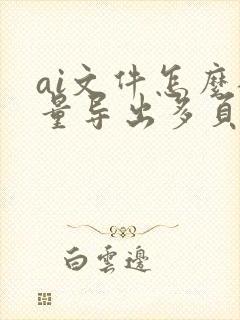 ai文件怎麽
量导出多頁
白雲邊